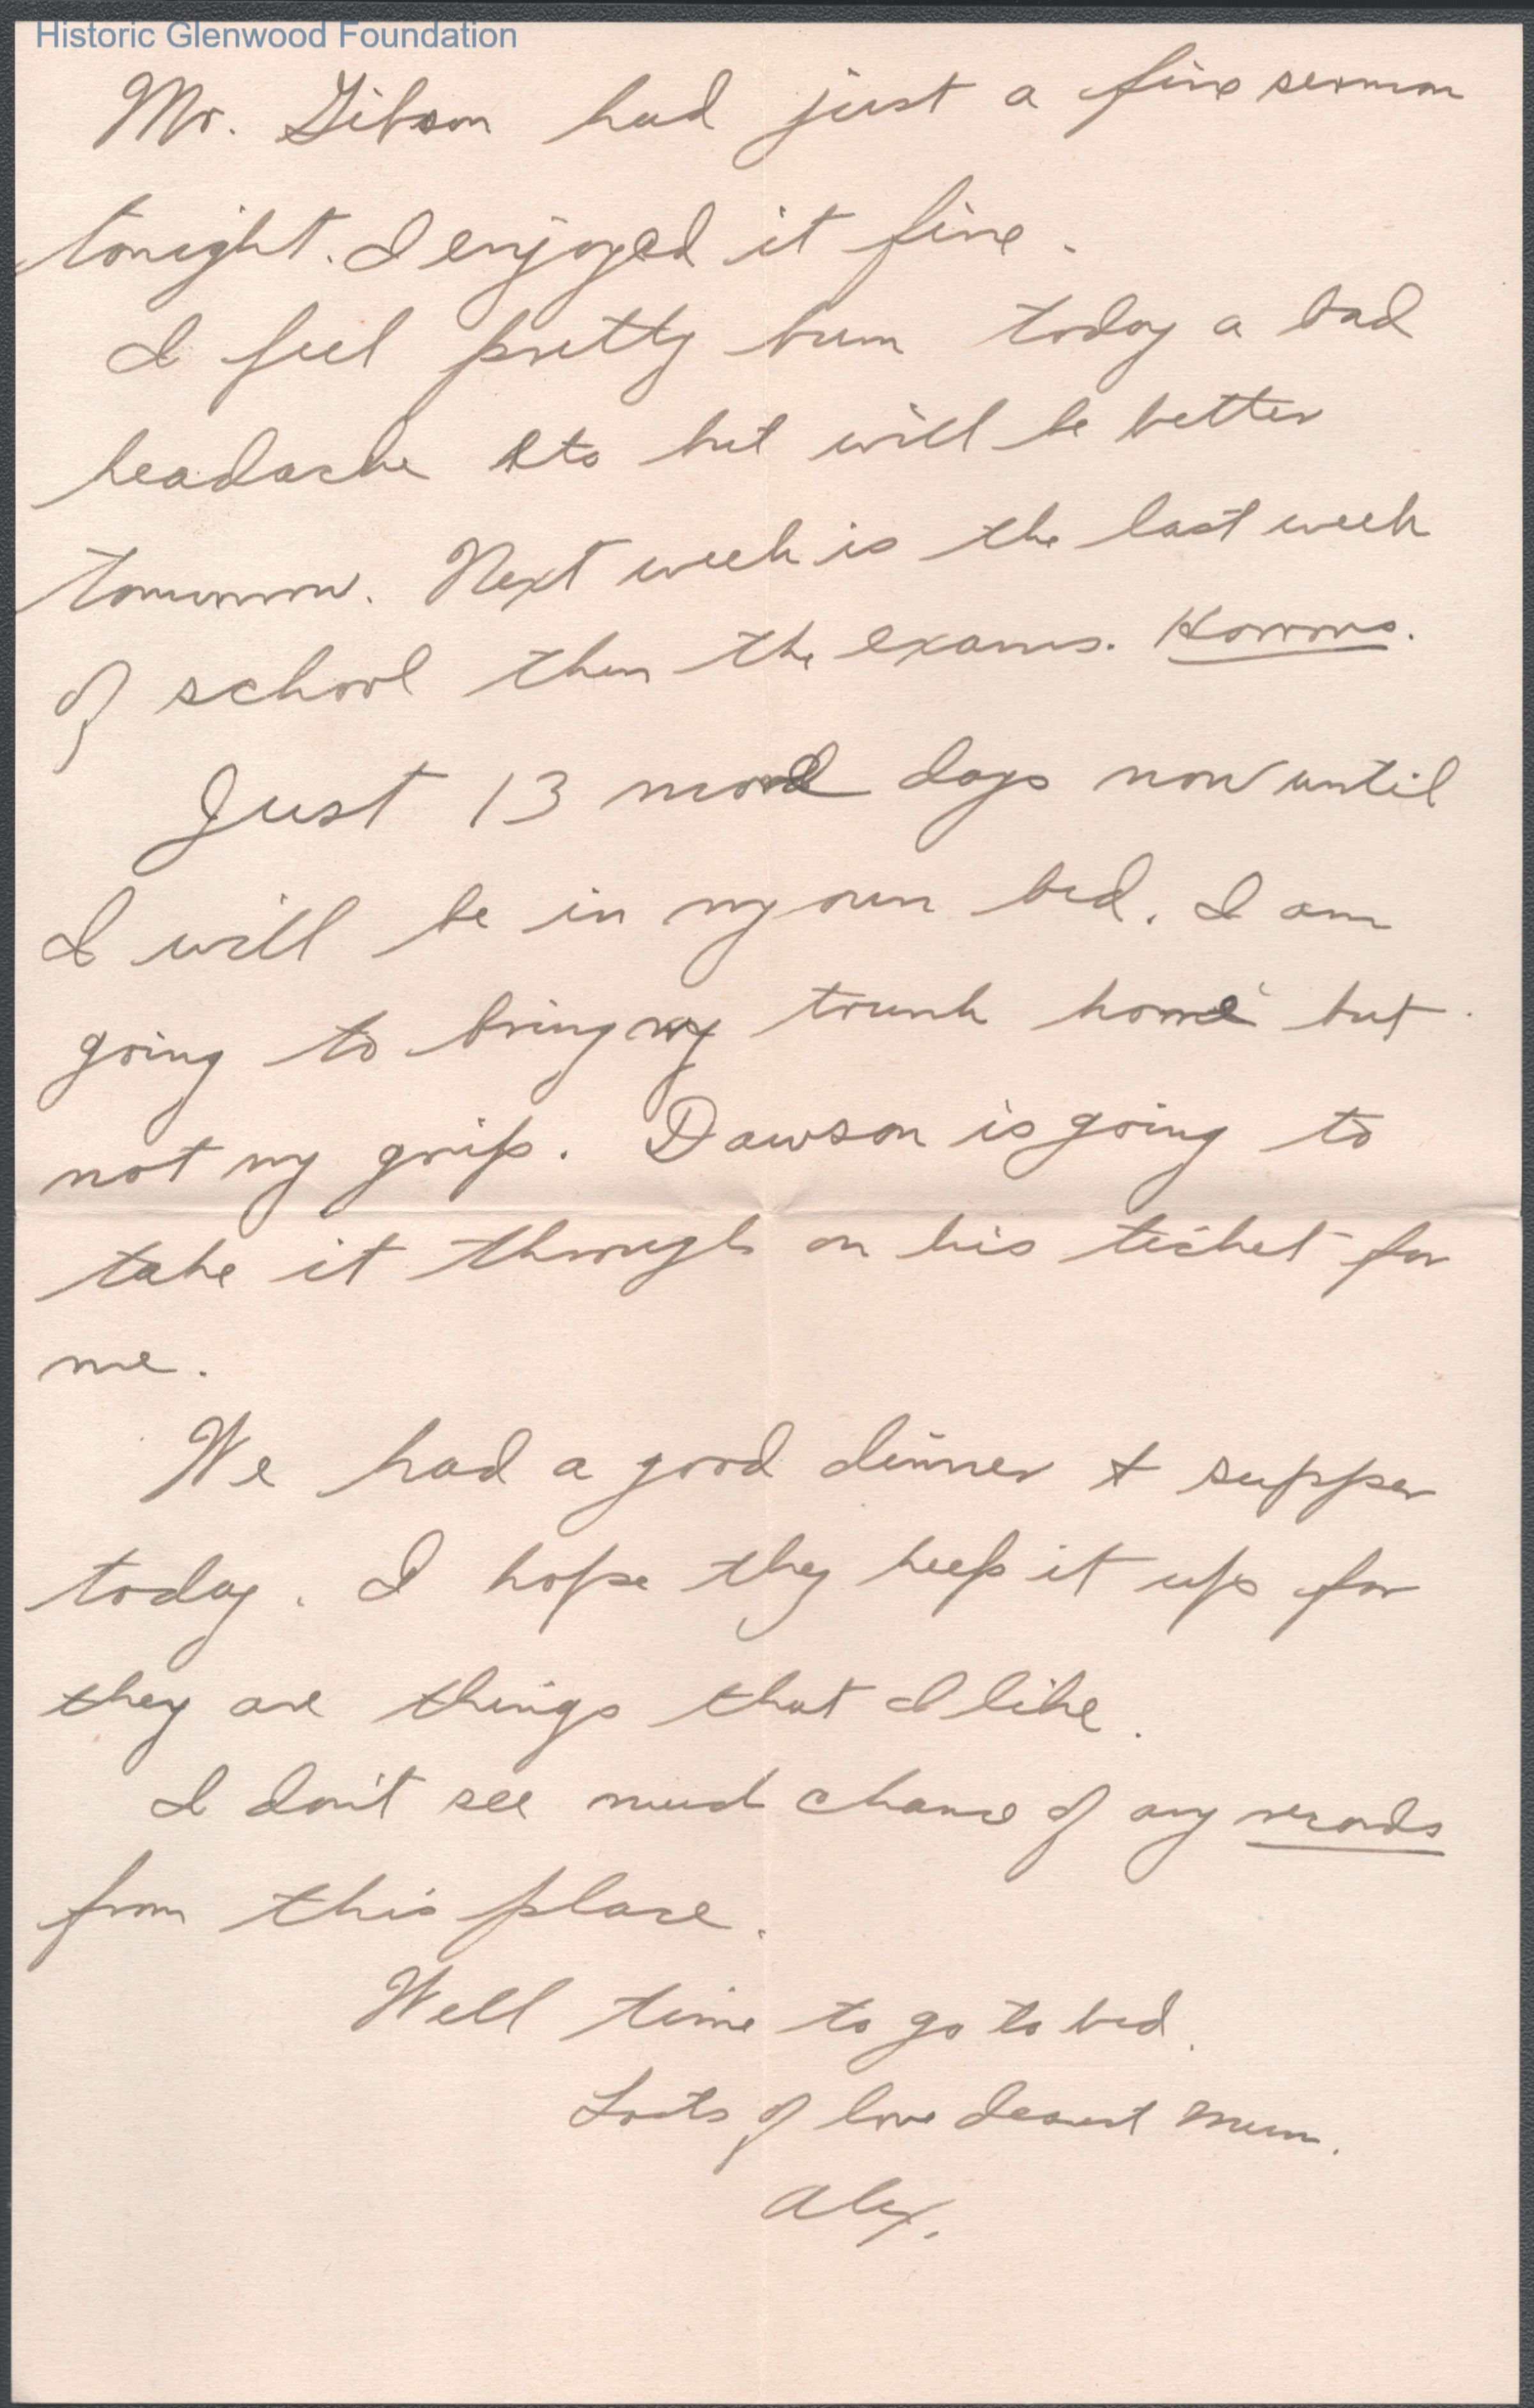 Historic Glenwood Foundation
Mr. Gibson had just a fine sermon
tonight. I enjoyed it fine.
I feel pretty bum today a bad
headache etc but will be better
tomorrow. Next week is the last week
of school then the exams. Horrors.
Just 13 more days now until
I will be in my own bed. I am
going to bring my trunk home but
not my grip. Dawson is going to
take it through on his ticket for
me.
We had a good dinner + supper
today. I hope they keep it up for
they are things that I like.
I don't see much chance of any records
from this place.
Well time to go to bed.
Lots of love dearest Mum.
Alex.